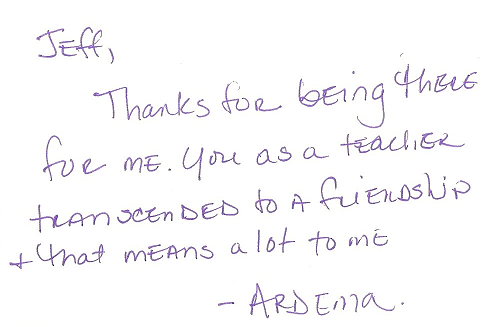 Jeff,
Thanks for being there
for me. You as a teacher
transcended to a friendship
+ that means a lot to me
- Ardema.